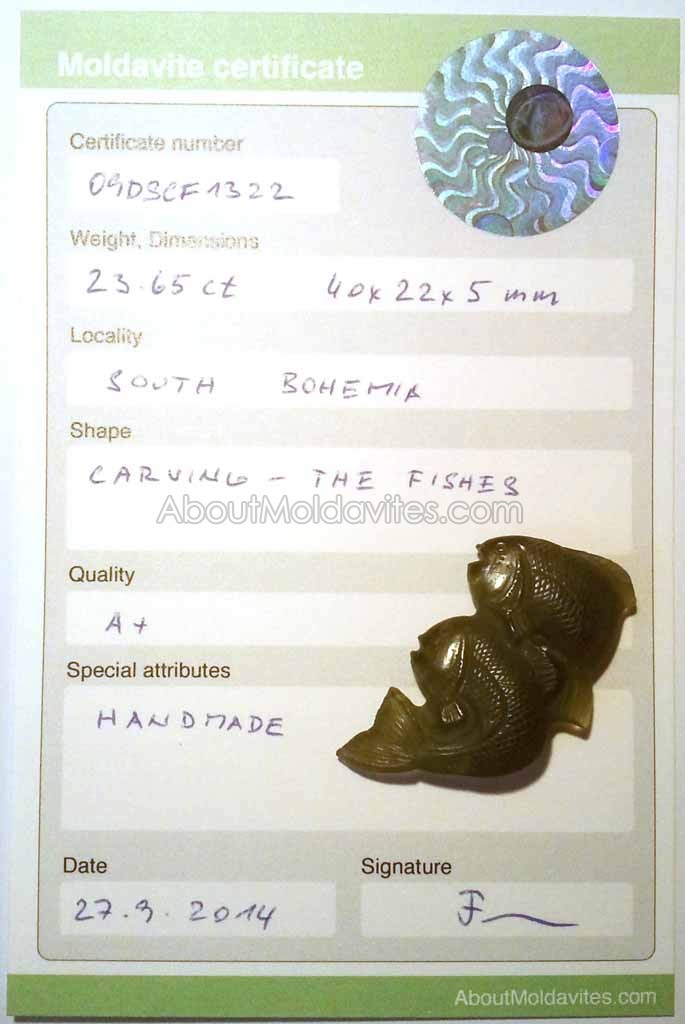 Moldavite certificate
Certificate number
09DSCF1322
Weight, Dimensions
23.65 ct 40x22x5 mm
Locality
SOUTH BOHEMIA
Shape
CARVING - THE FISHES
AboutMoldavites.com
Quality
A+
Special attributes
HANDMADE
Date Signature
27.9.2014
AboutMoldavites.com